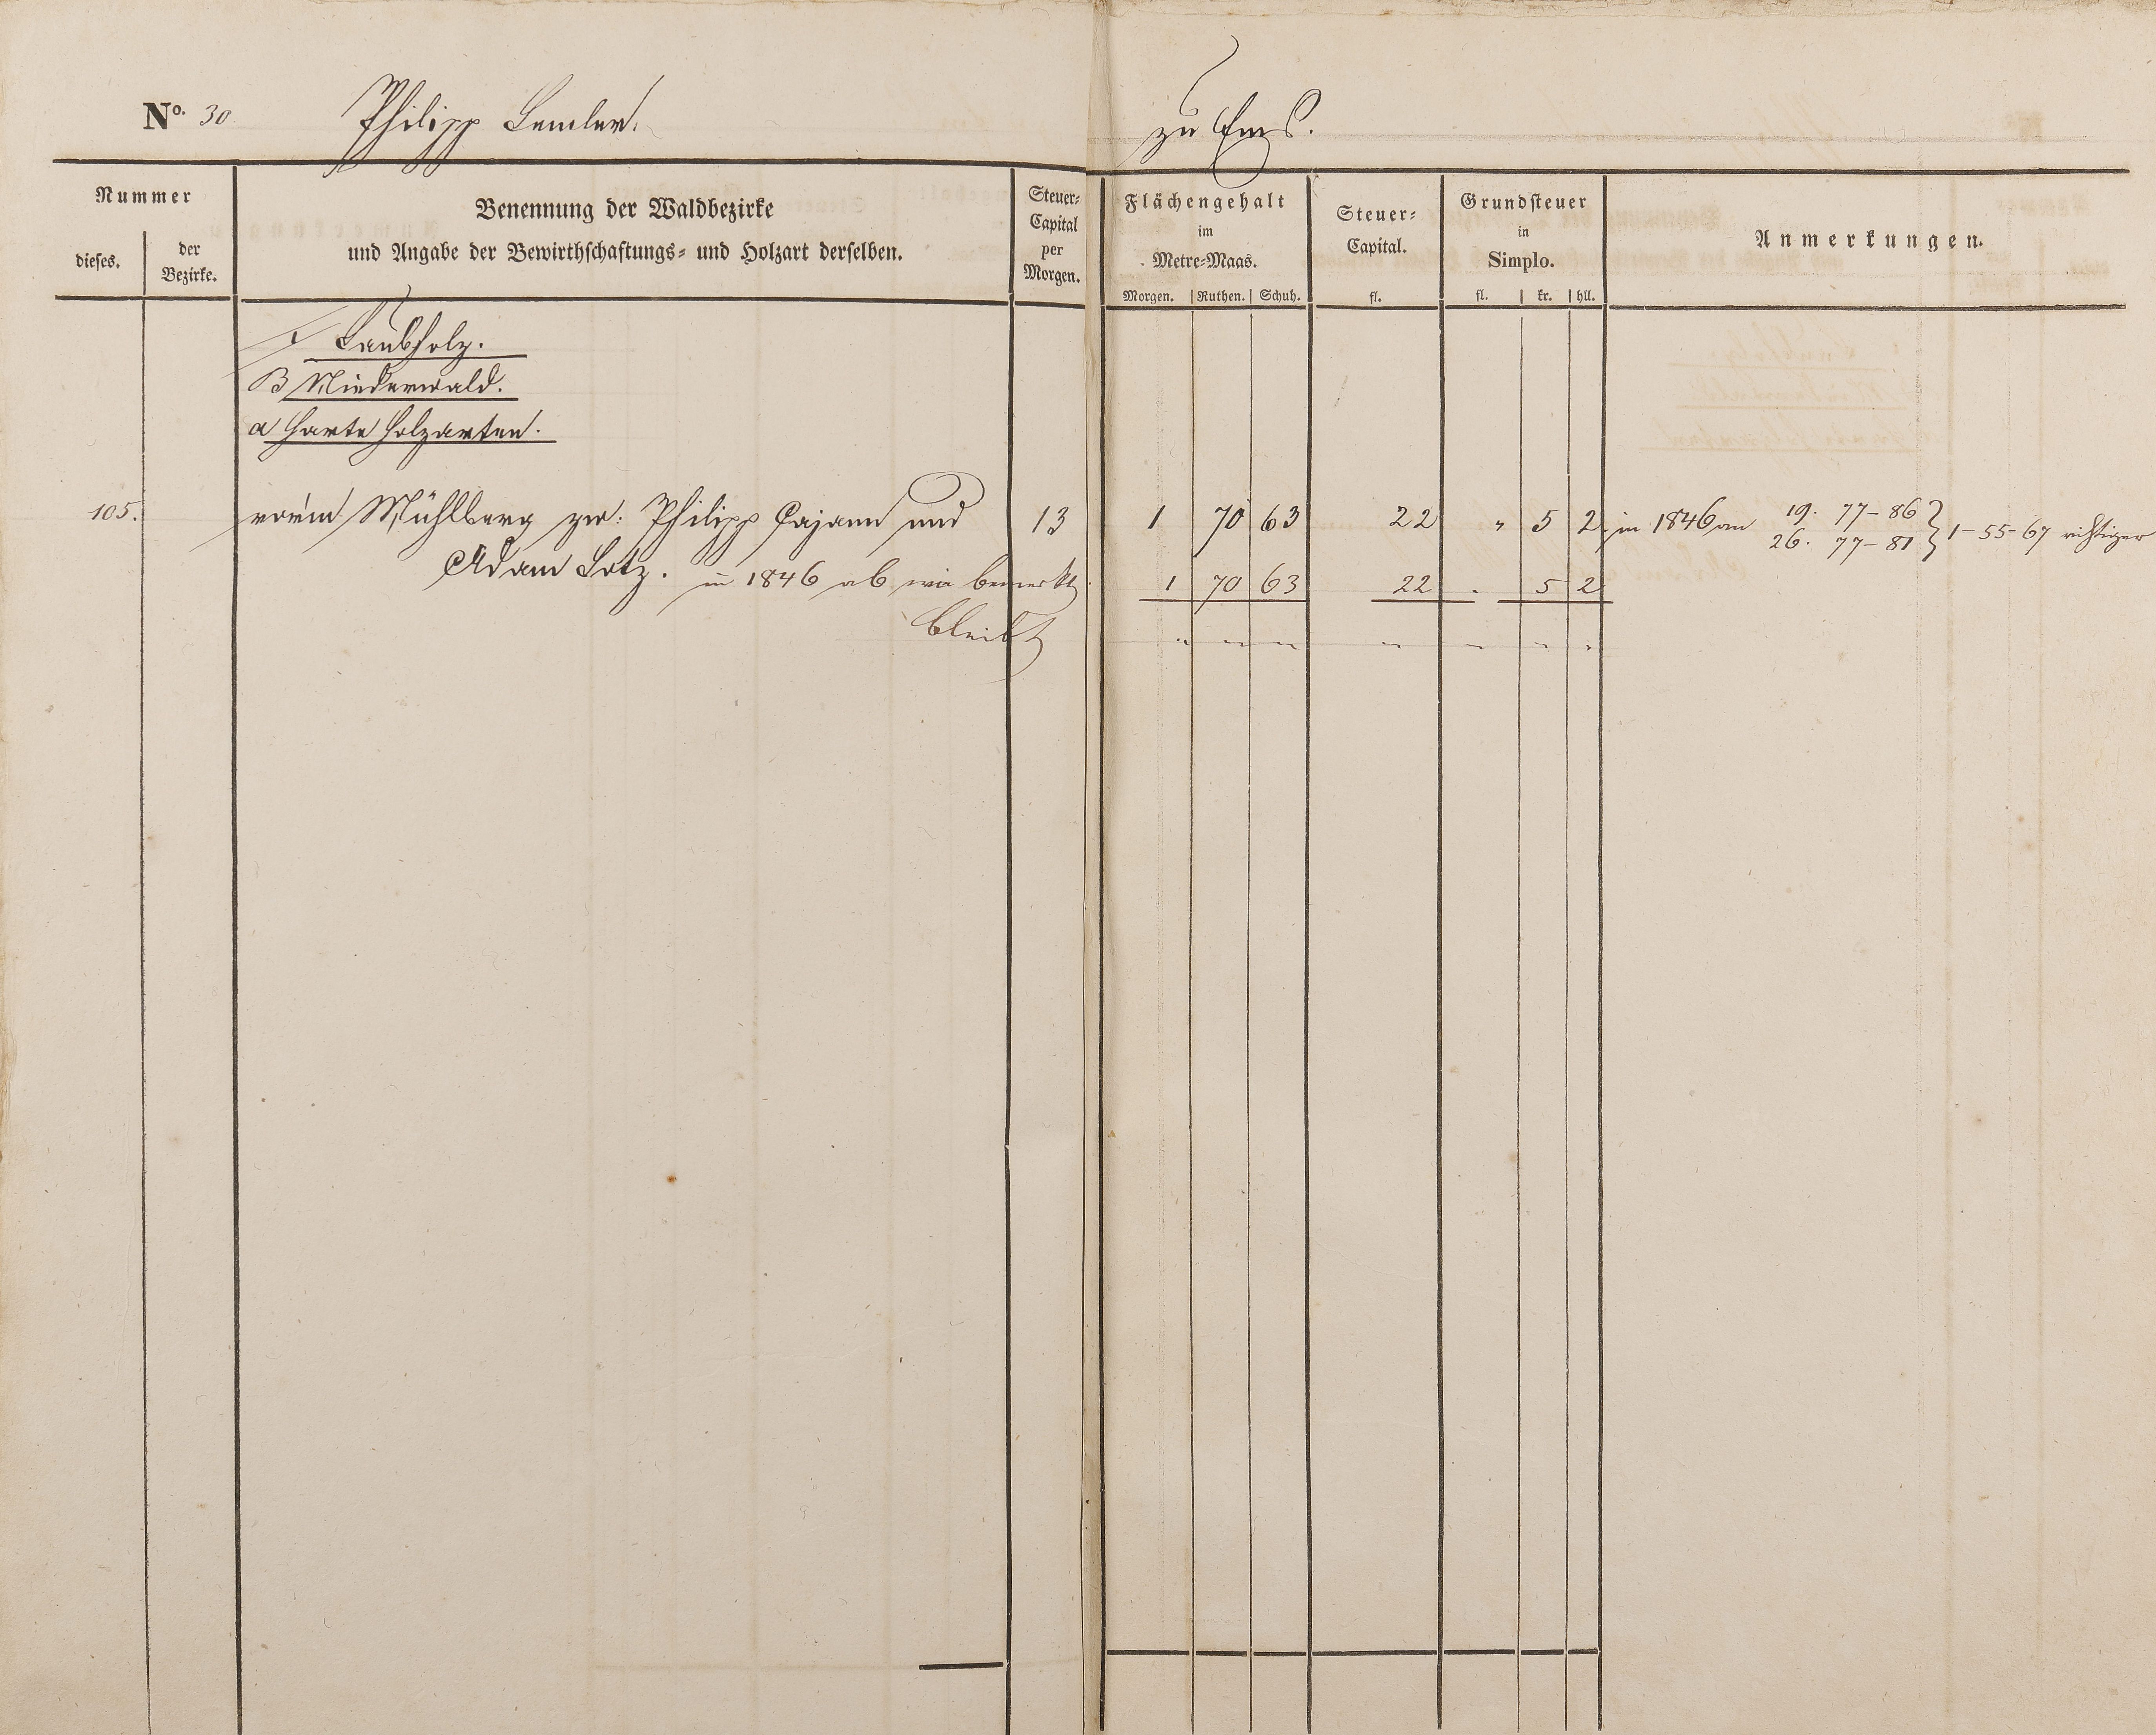 No. 30 Philipp Lemler. zu Ems.
Nummer
dieses.
der
Bezirke.
Benennung der Waldbezirke
und Angabe der Bewirthschaftungs- und Holzart derselben.
Steuer-
Capital
per
Morgen.
Flächengehalt
im
Metre-Maas.
Morgen. Ruthen. Schuh.
Steuer-
Capital.
fl.
Grundsteuer
in
Simplo.
fl. kr. hll.
Anmerkungen.
Laubholz.
B Niederwald.
a Harte Holzarten.
105. vorm Mühlberg zw: Philipp Cajann und 13 1 70 63 22 " 5 2 in 1846 an 19. 77-86
26. 77-81 } 1-55-67 richtiger
Adam Lotz. in 1846 ab wie bemerkt 1 70 63 22 . 5 2
bleibt " " " " " " "